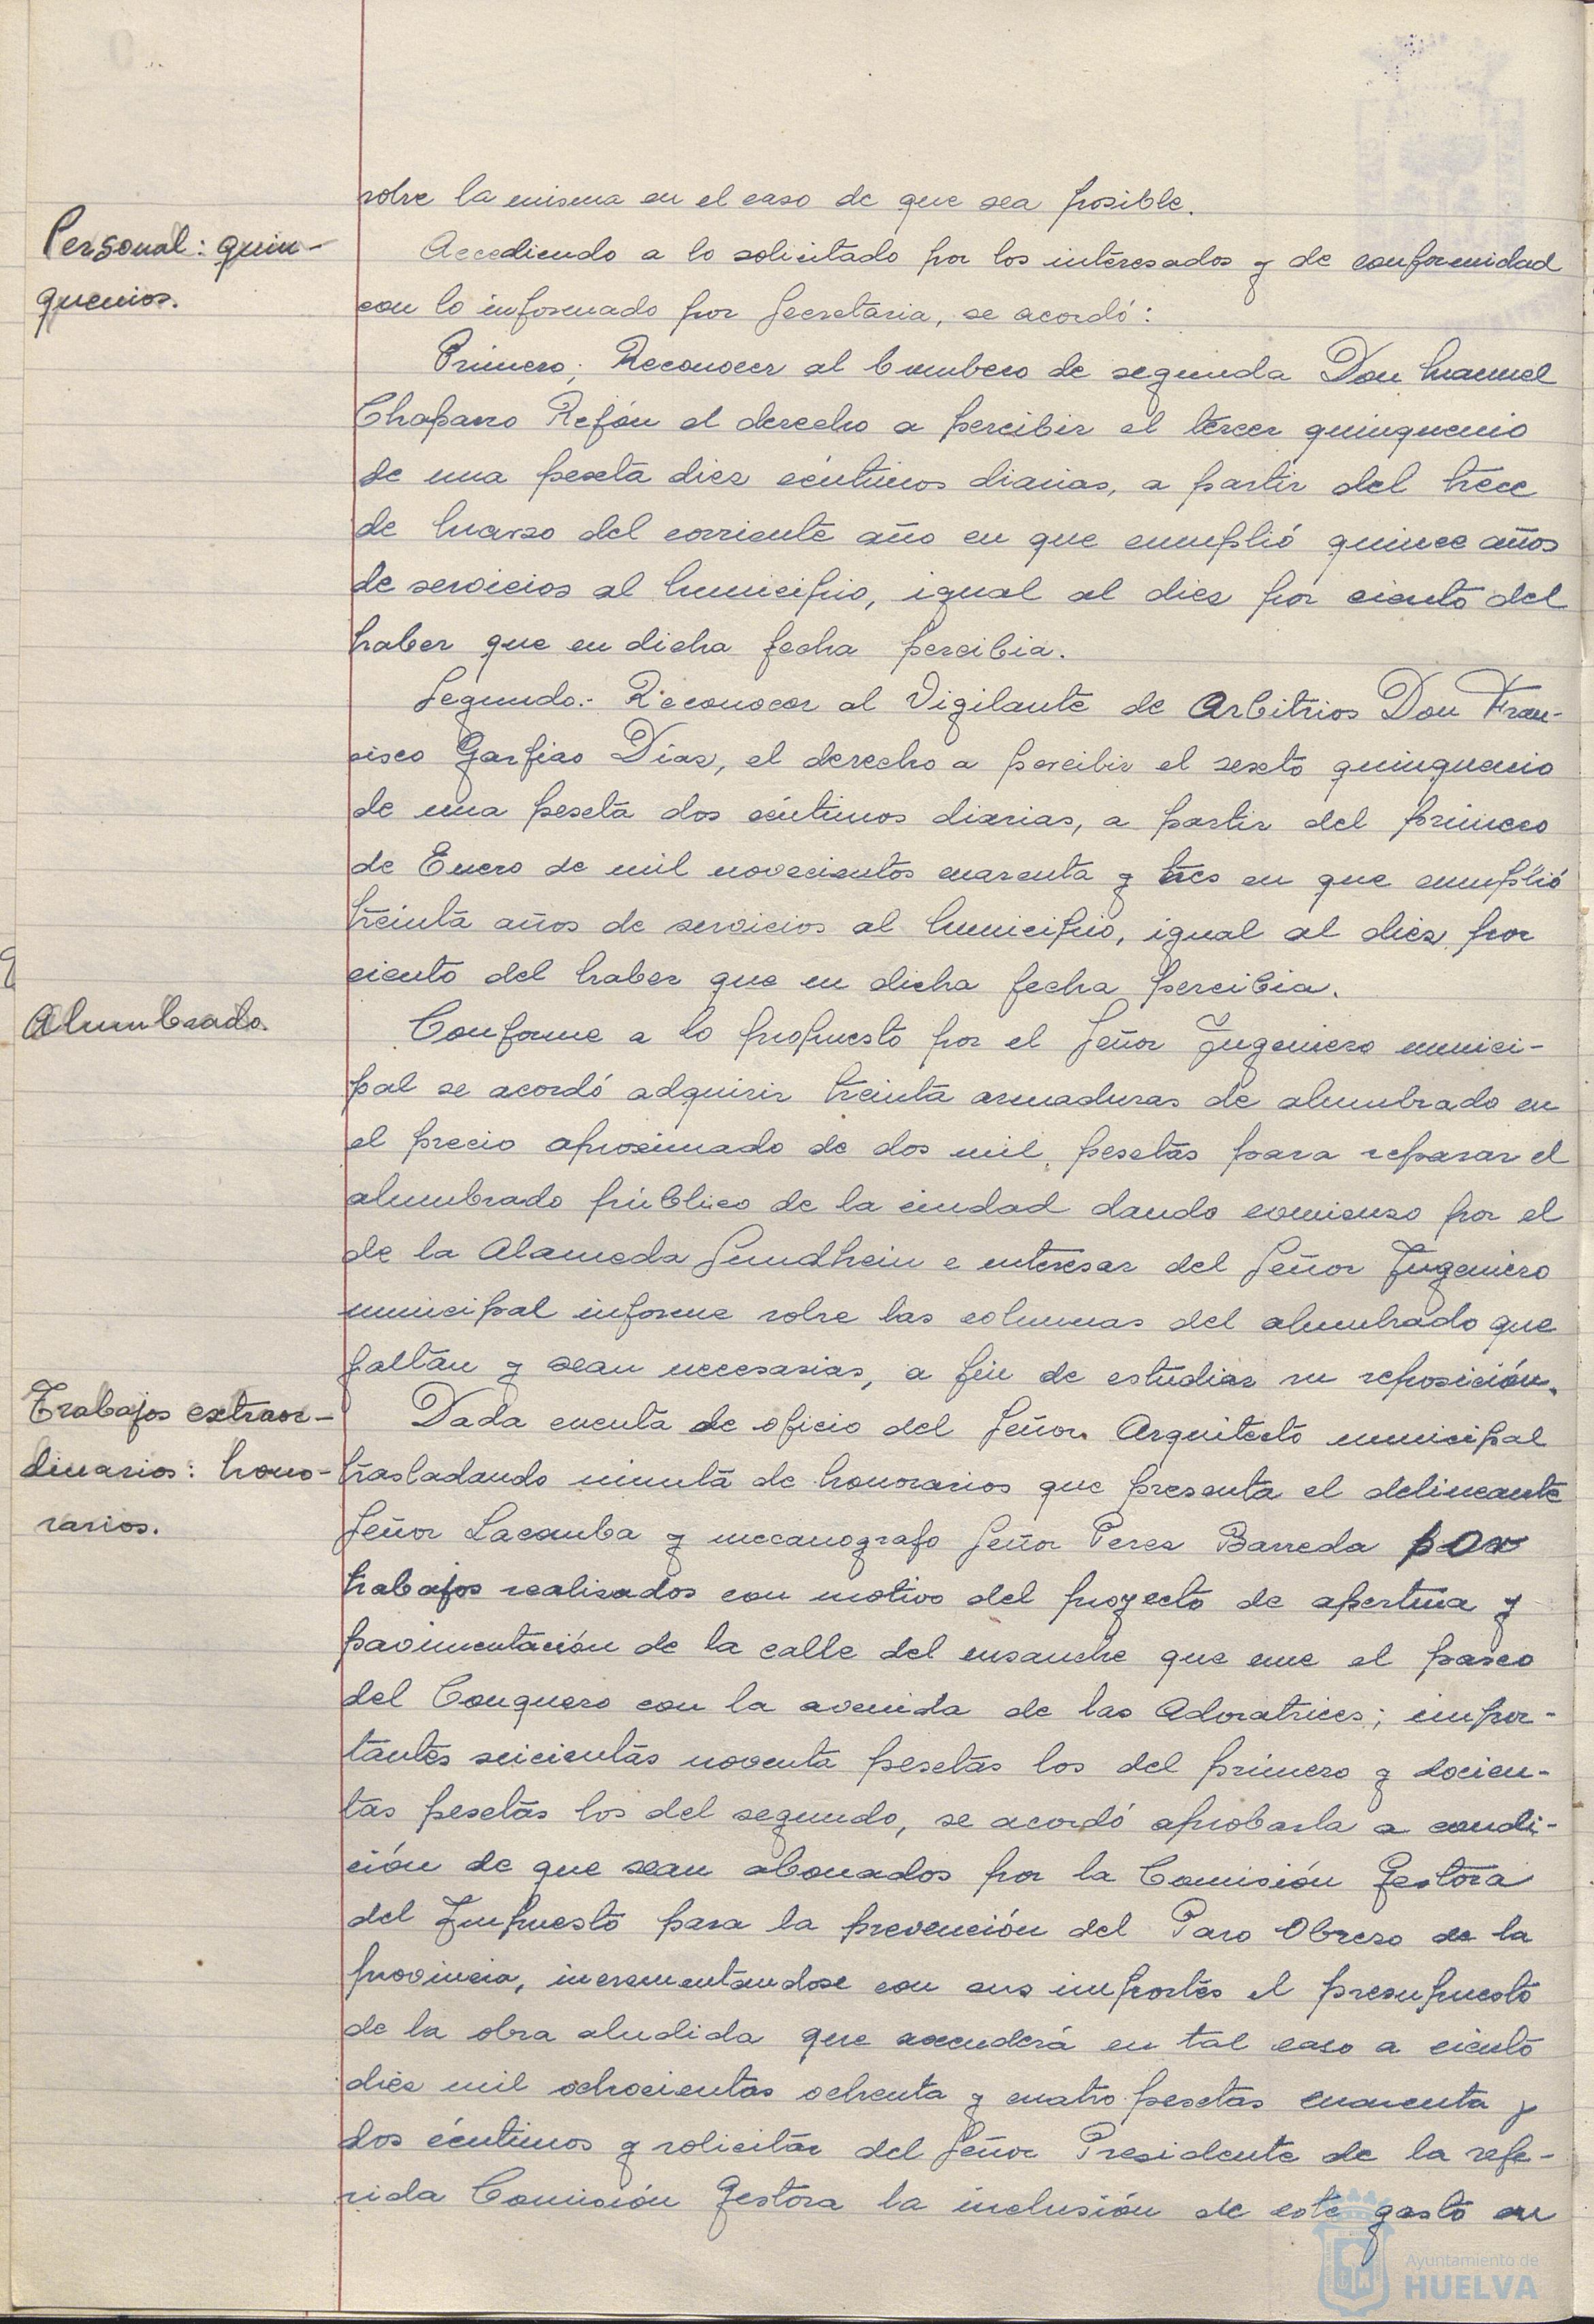 sobre la misma en el caso de que sea posible.
Personal: quin-
quenios.
Accediendo a lo solicitado por los interesados y de conformidad
con lo informado por Secretaria, se acordó:
Primero; Reconocer al bombero de segunda Don Manuel
Chaparro Rejón el derecho a percibir el tercer quinquenio
de una peseta diez céntimos diarias, a partir del trece
de Marzo del corriente año en que cumplió quince años
de servicios al Municipio, igual al diez por ciento del
haber que en dicha fecha percibia.
Segundo.- Reconocer al Vigilante de Arbitrios Don Fran-
cisco Garfias Díaz, el derecho a percibir el sexto quinquenio
de una peseta dos céntimos diarias, a partir del primero
de Enero de mil novecientos cuarenta y tres en que cumplió
treinta años de servicios al Municipio, igual al diez por
ciento del haber que en dicha fecha percibia.
Alumbrado.
Conforme a lo propuesto por el Señor Ingeniero munici-
pal se acordó adquirir treinta armaduras de alumbrado en
el precio aproximado de dos mil pesetas para reparar el
alumbrado público de la ciudad dando comienzo por el
de la Alameda Sundhein e interesar del Señor Ingeniero
municipal informe sobre las columnas del alumbrado que
faltan y sean necesarias, a fin de estudiar su reposición.
Trabajos extraor-
dinarios: hono-
rarios.
Dada cuenta de oficio del Señor Arquitecto municipal
trasladando minuta de honorarios que presenta el delineante
Señor Lacamba y mecanografo Señor Perez Barreda por
trabajos realizados con motivo del proyecto de apertura y
pavimentación de la calle del ensanche que une el paseo
del Conquero con la avenida de las Adoratrices; impor-
tantes seicientas noventa pesetas los del primero y docien-
tas pesetas los del segundo, se acordó aprobarla a condi-
ción de que sean abonados por la Comisión Gestora
del Impuesto para la prevención del Paro Obrero de la
provincia, incrementandose con sus importes el presupuesto
de la obra aludida que ascenderá en tal caso a ciento
diez mil ochocientas ochenta y cuatro pesetas cuarenta y
dos céntimos y solicitar del Señor Presidente de la refe-
rida Comisión Gestora la inclusión de este gasto en
Ayuntamiento de
HUELVA